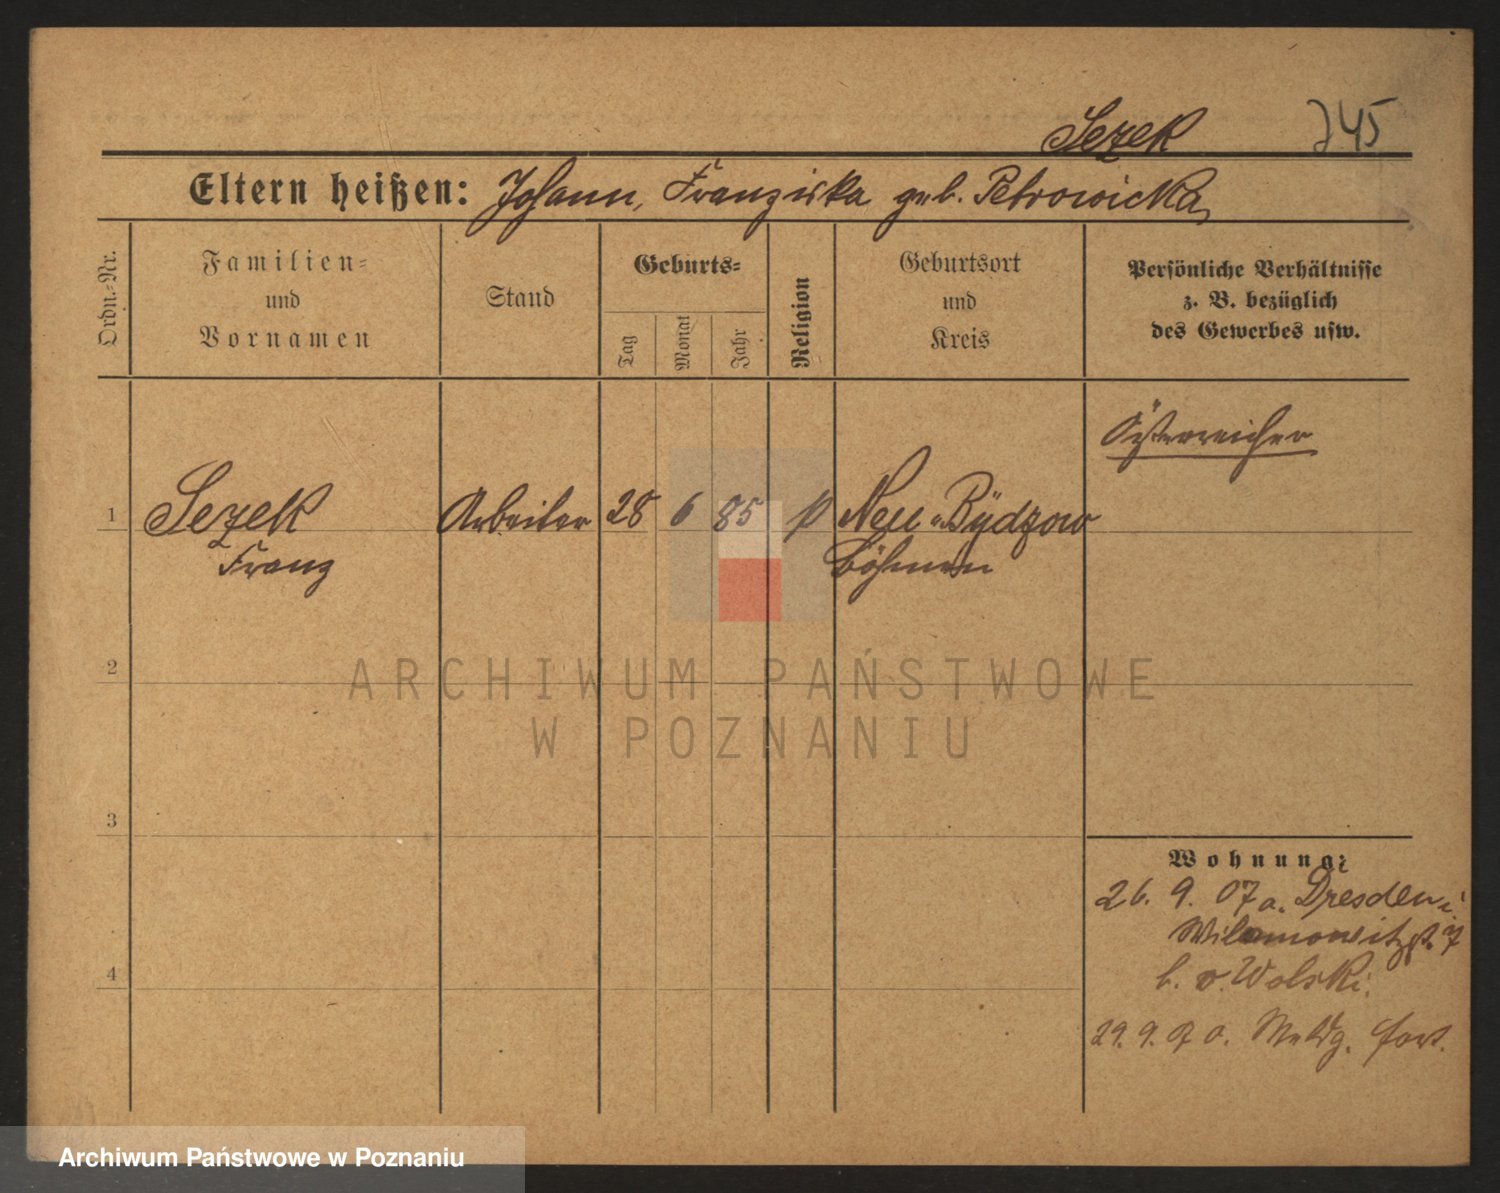 Sezek 745
Eltern heißen: Johann, Franziska geb. Petrowicka
Ordn.-Nr.
Familien-
und
Vornamen
Stand
Geburts-
Tag
Monat
Jahr
Religion
Geburtsort
und
Kreis
Persönliche Verhältnisse
z. B. bezüglich
des Gewerbes usw.
Österreicher
1 Sezek Arbeiter 28 6 85 Neu-Bydzow
Franz Böhmen
2
ARCHIWUM PAŃSTWOWE
W POZNANIU
3
Wohnung:
26. 9. 07 a. Dresden
Wilamowitzst. 7
b. v. Wolski.
4
29. 9. 07 o. Meldg. fort.
Archiwum Państwowe w Poznaniu